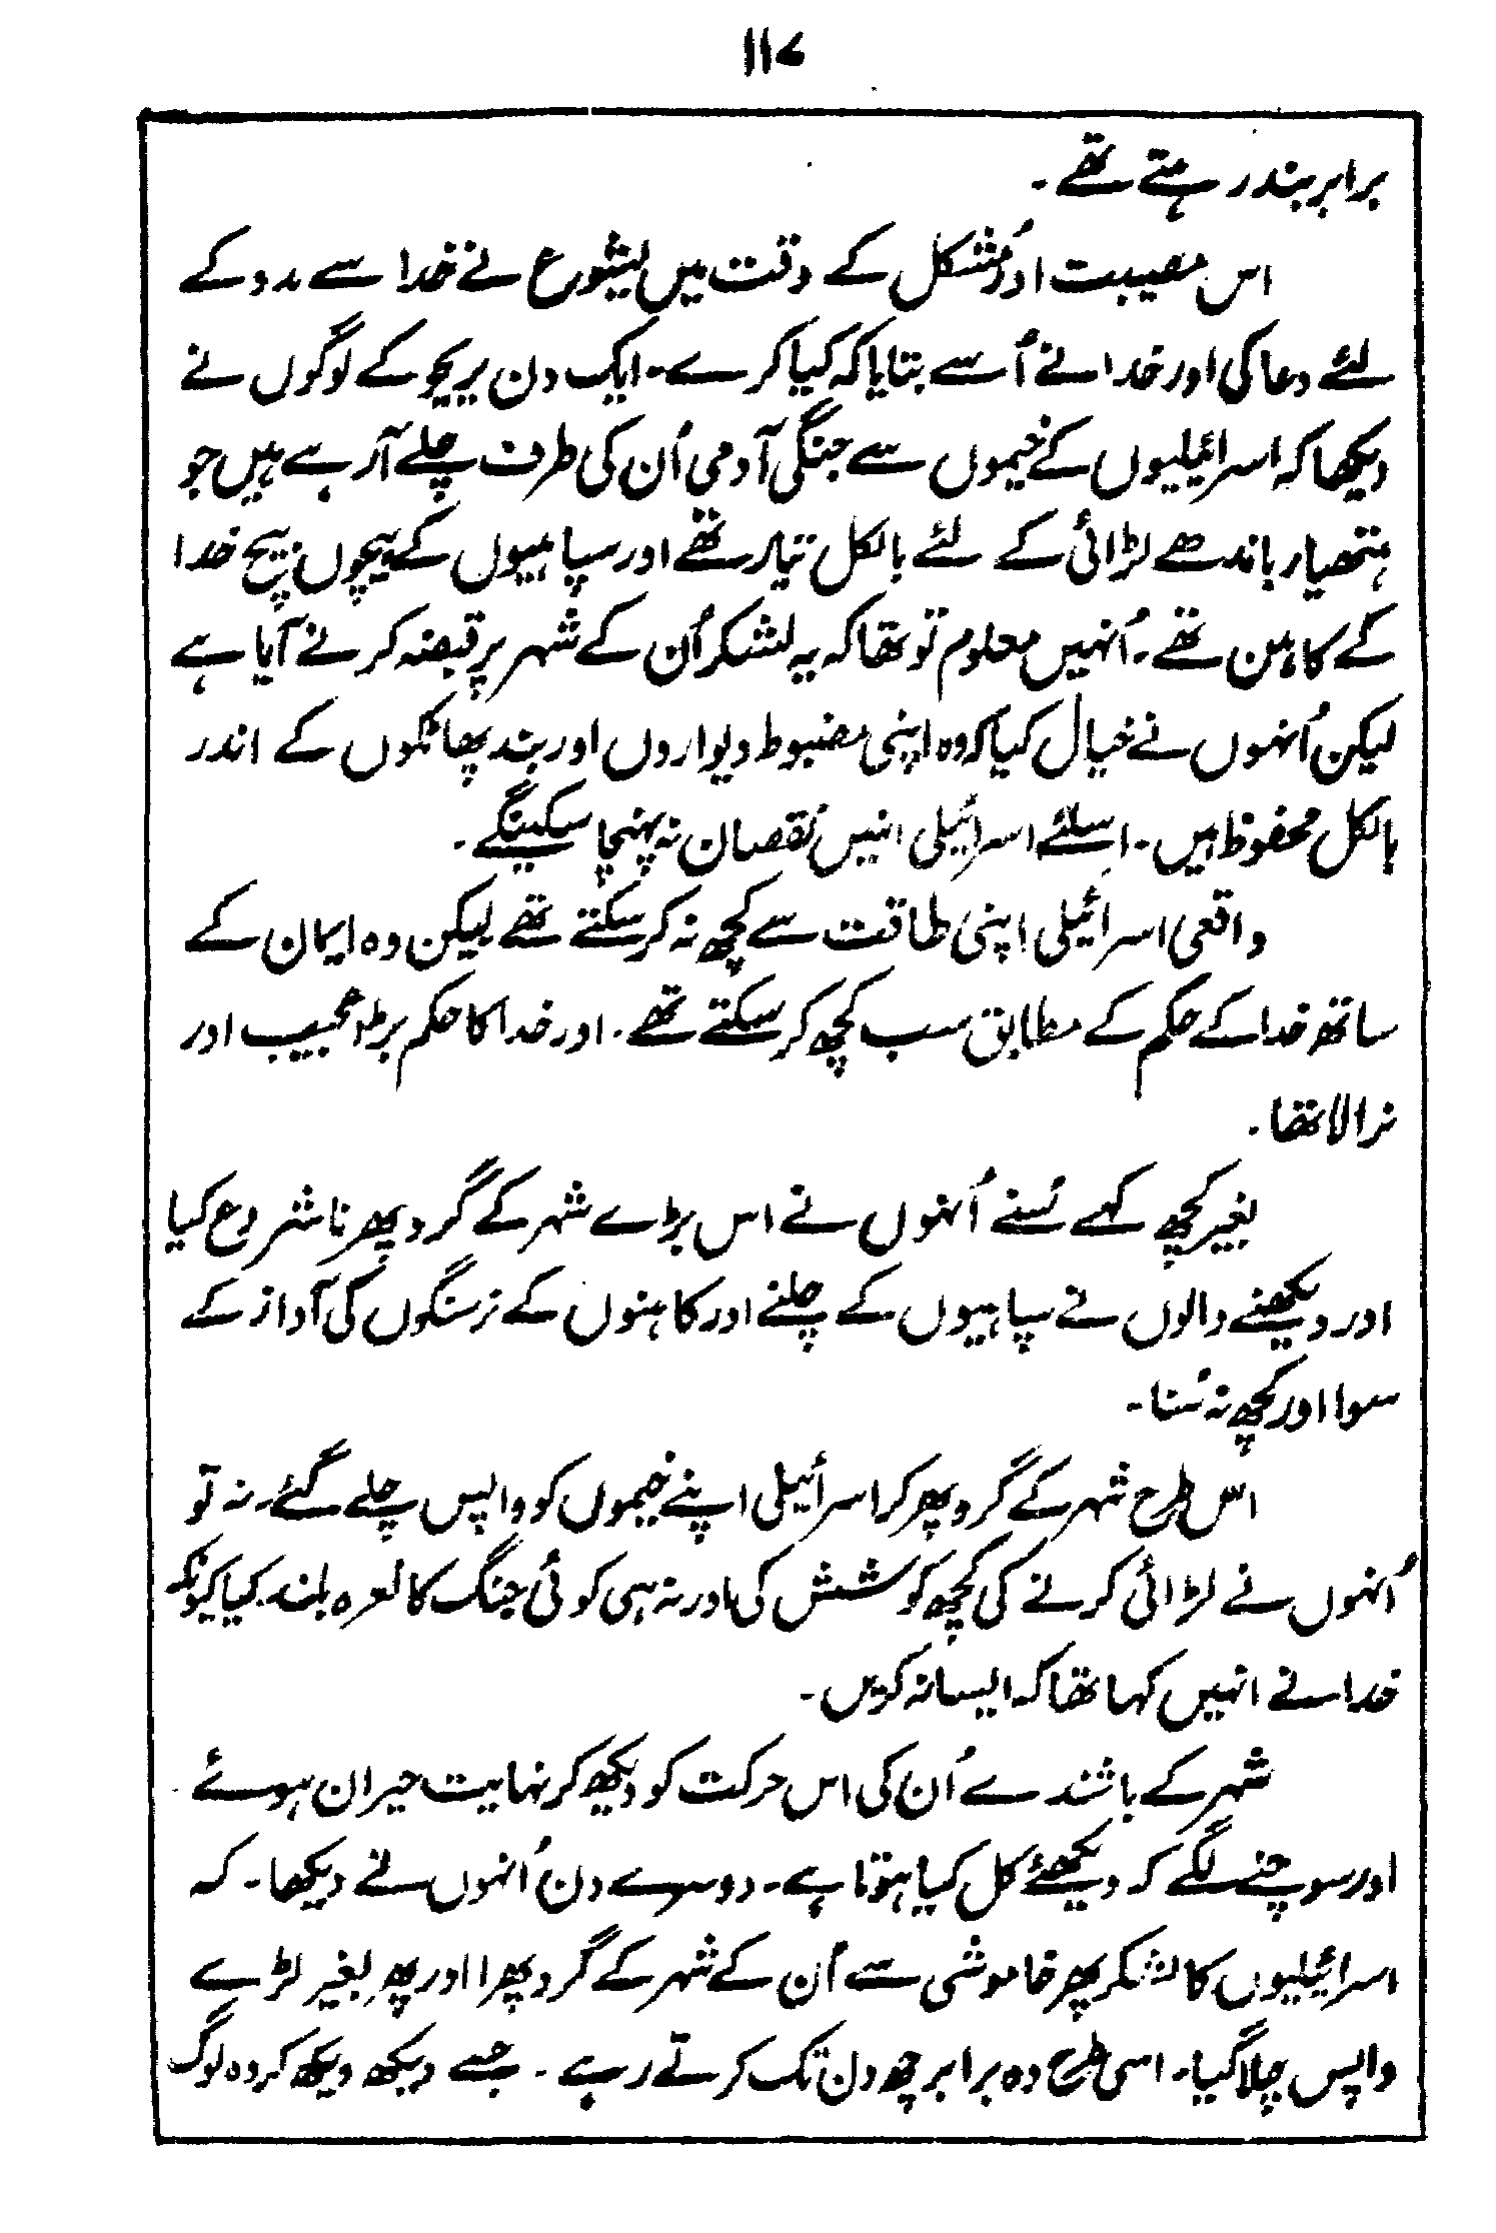 ۱۱۷
برابر بند رہتے تھے۔
اس مصیبت اور مُشکل کے وقت میں یشوع نے خدا سے مدد کے
لئے دعا کی اور خدا نے اُسے بتایا کہ کیا کرے۔ ایک دن یریحو کے لوگوں نے
دیکھا کہ اسرائیلیوں کے خیموں سے جنگی آدمی اُن کی طرف چلے آ رہے ہیں جو
ہتھیار باندھے لڑائی کے لئے بالکل تیار تھے اور سپاہیوں کے بیچوں بیچ خدا
کے کاہن تھے۔ اُنہیں معلوم تو تھا کہ یہ لشکر اُن کے شہر پر قبضہ کرنے آیا ہے
لیکن اُنہوں نے خیال کیا کہ وہ اپنی مضبوط دیواروں اور بند پھاٹکوں کے اندر
بالکل محفوظ ہیں۔ اسلئے اسرائیلی انہیں نقصان نہ پہنچا سکینگے۔
واقعی اسرائیلی اپنی طاقت سے کچھ نہ کر سکتے تھے لیکن وہ ایمان کے
ساتھ خدا کے حکم کے مطابق سب کچھ کر سکتے تھے۔ اور خدا کا حکم بڑا عجیب اور
نرالا تھا۔
بغیر کچھ کہے سُنے اُنہوں نے اس بڑے شہر کے گرد پھرنا شروع کیا
اور دیکھنے والوں نے سپاہیوں کے چلنے اور کاہنوں کے نرسنگوں کی آواز کے
سوا اور کچھ نہ سُنا۔
اس طرح شہر کے گرد پھر کر اسرائیلی اپنے خیموں کو واپس چلے گئے۔ نہ تو
اُنہوں نے لڑائی کرنے کی کچھ کوشش کی اور نہ ہی کوئی جنگ کا نعرہ بلند کیا کیونکہ
خدا نے انہیں کہا تھا کہ ایسا نہ کریں۔
شہر کے باشندے اُن کی اس حرکت کو دیکھ کر نہایت حیران ہوئے
اور سوچنے لگے کہ دیکھئے کل کیا ہوتا ہے۔ دوسرے دن اُنہوں نے دیکھا۔ کہ
اسرائیلیوں کا لشکر پھر خاموشی سے اُن کے شہر کے گرد پھرا اور پھر بغیر لڑے
واپس چلا گیا۔ اسی طرح وہ برابر چھ دن تک کرتے رہے۔ جسے دیکھ دیکھ کر وہ لوگ